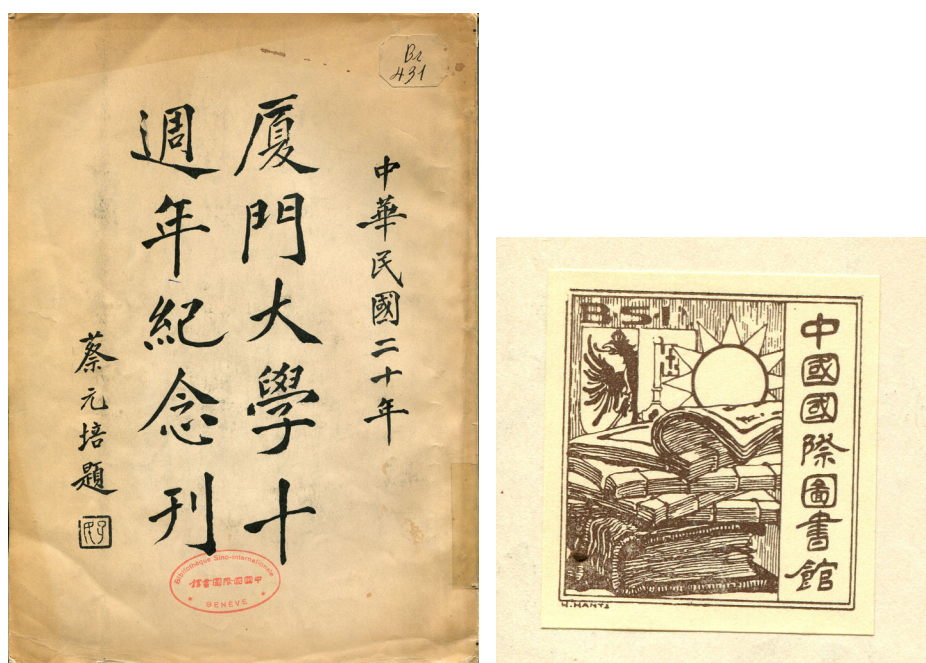 Br
431
中華民國二十年
厦門大學十
週年紀念刊
蔡元培題
Bibliothèque Sino-Internationale
中國國際圖書館
GENÈVE
B.S.I.
中國國際圖書館
H.HANTZ